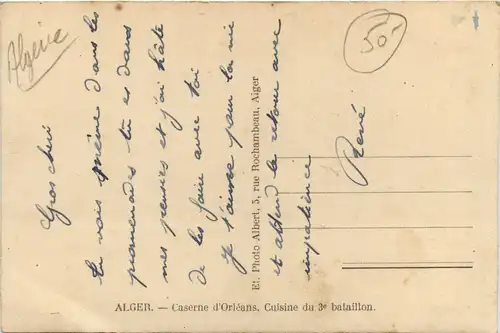 Algérie
50-
Gros chéri
tu vois même dans les
promenades tu es dans
mes pensées et j'ai hâte
de les faire avec toi
Je t'aime pour la vie
et attend le retour avec
impatience
René
Et. Photo Albert, 5, rue Rochambeau, Alger
ALGER. — Caserne d'Orléans, Cuisine du 3e bataillon.